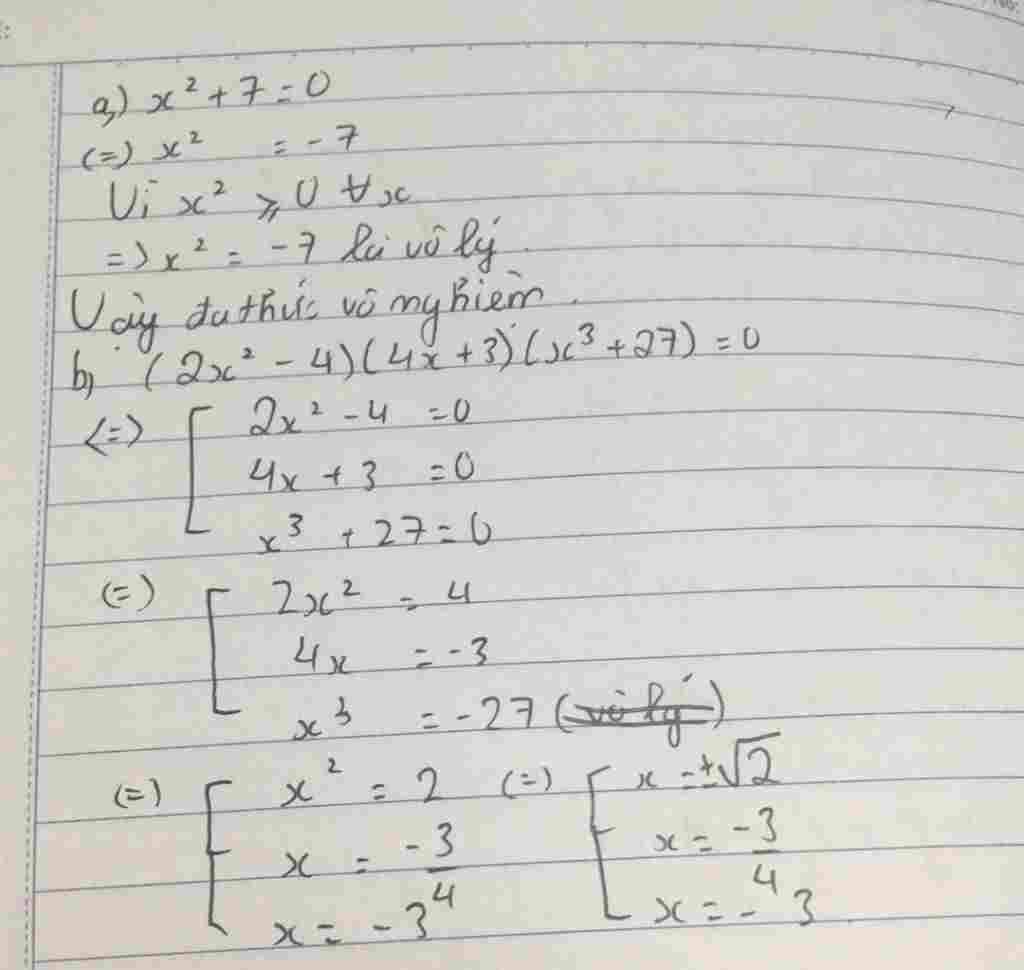 a) x² + 7 = 0
(=) x² = -7
Vì x² ⩾ 0 ∀x
=> x² = -7 là vô lý.
Vậy đa thức vô nghiệm.
b) (2x² - 4)(4x + 3)(x³ + 27) = 0
<=> [ 2x² - 4 = 0
4x + 3 = 0
x³ + 27 = 0
(=) [ 2x² = 4
4x = -3
x³ = -27 (vô lý)
(=) [ x² = 2 (=) [ x = ±√2
x = -3/4 x = -3/4
x = -3 x = -3